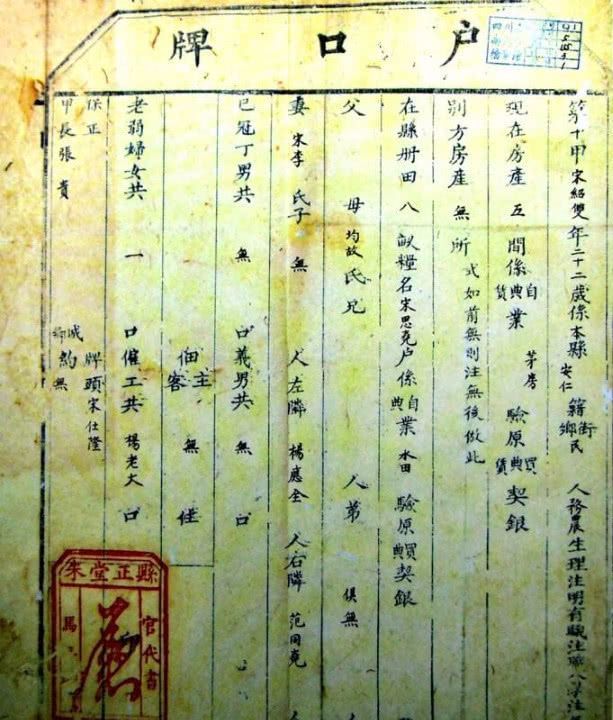 戶口牌
第十甲宋紹雙年二十二歲係本縣安仁鄉街籍民 人務農生理注明有職注職
現在房產五間係自典業 茅房 驗原買典契銀
別方房產無所 式如前無則注無後倣此
在縣冊田八畝糧名宋思堯戶係自典業水田 驗原買典契銀
父 母均故氏兄 人弟俱無
妻宋李氏子無 人左隣楊應全 人右隣范同堯 人
已冠丁男共無口義男共無口
主佃客無住
老弱婦女共一口僱工共楊老大口
保正 牌頭宋仕隆
甲長張貴 城鄉約無
縣正堂朱
官代書
馬